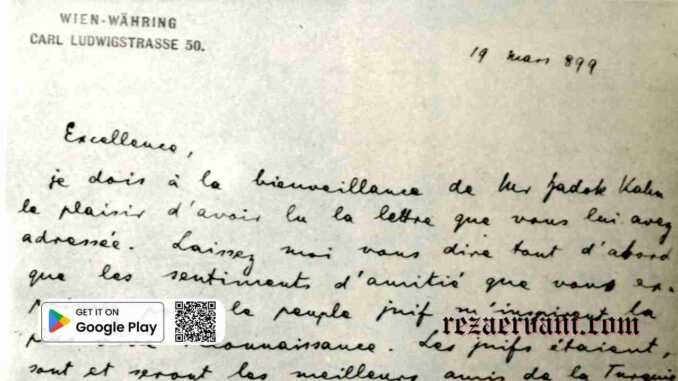 WIEN-WÄHRING
CARL LUDWIGSTRASSE 50.
19 mars 899
Excellence,
je dois à la bienveillance de Mr Zadok Kahn
le plaisir d'avoir lu la lettre que vous lui avez
adressée. Laissez moi vous dire tout d'abord
que les sentiments d'amitié que vous ex-
le peuple juif m'inspirent la
Les juifs étaient,
sont et seront les meilleurs amis de la Turquie
GET IT ON
Google Play
rezaervani.com